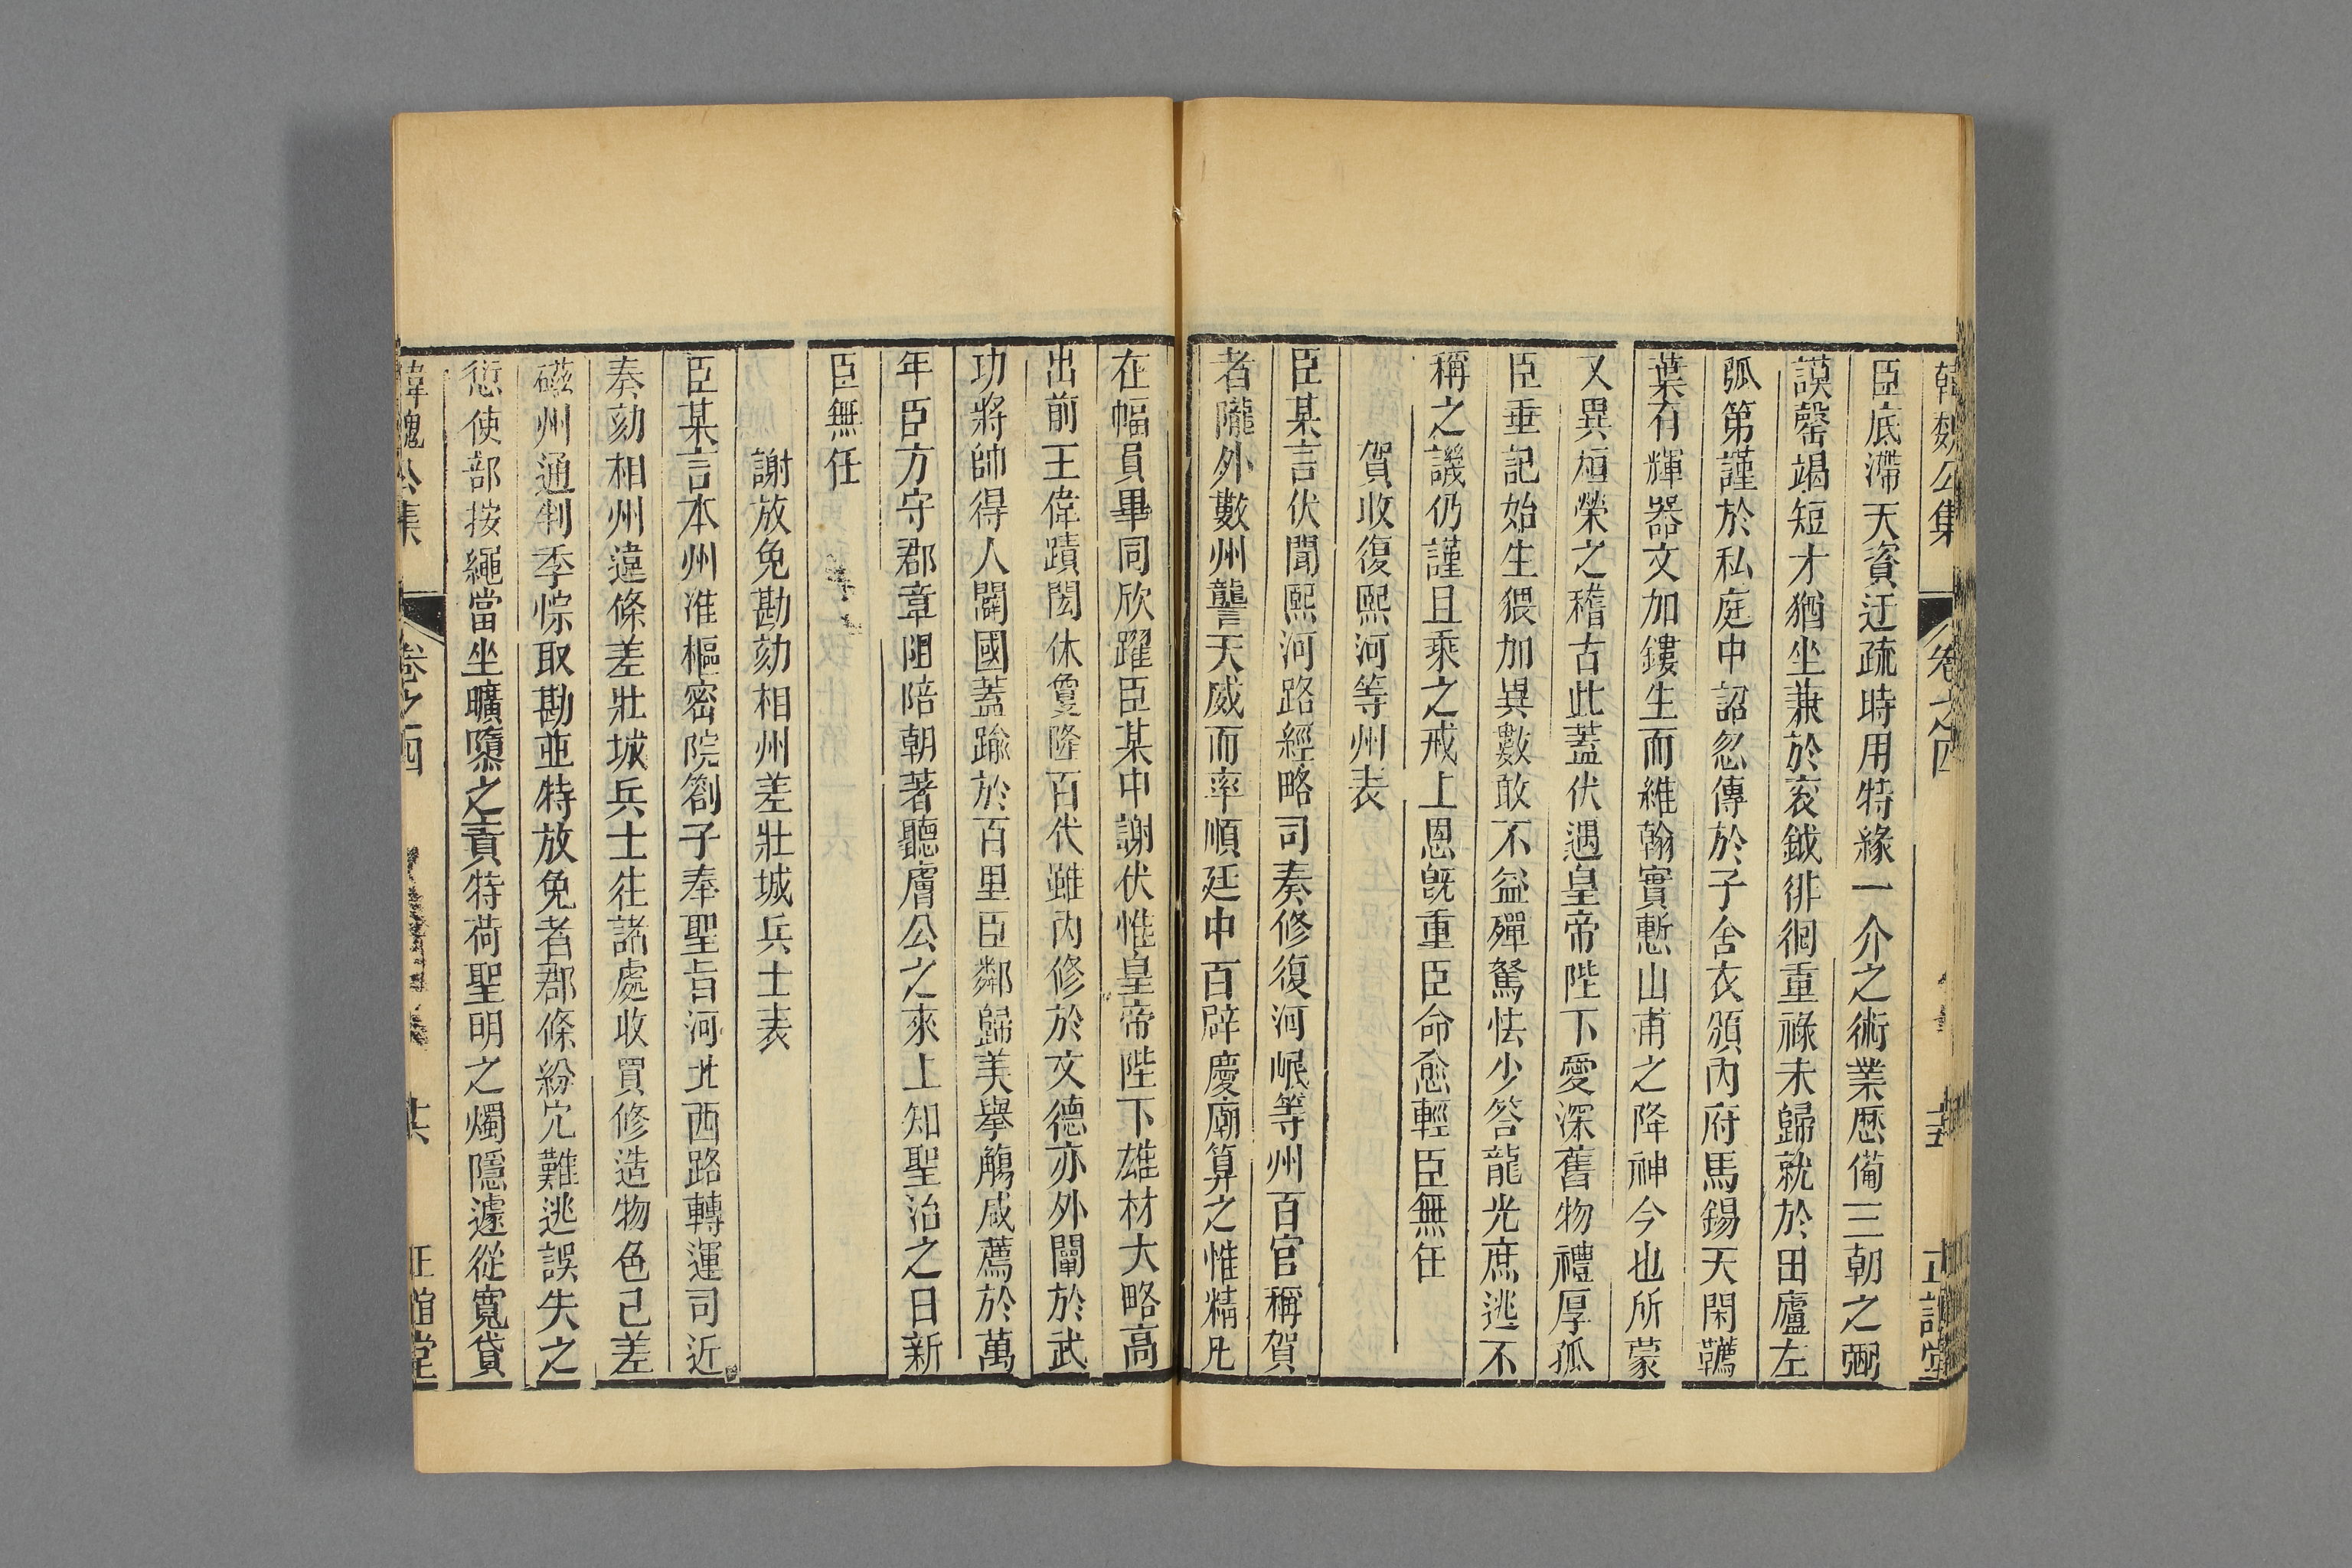 韓魏公集 卷之四 正誼堂
臣底滯天資迂疏時用特緣一介之術業歷備三朝之弼
謨罄竭短才猶坐兼於衮鉞徘徊重祿未歸就於田廬左
弧第謹於私庭中詔忽傳於子舍衣頒內府馬錫天閑韉
葉有輝器文加鏤生而維翰實慙山甫之降神今也所蒙
又異桓榮之稽古此蓋伏遇皇帝陛下愛深舊物禮厚孤
臣垂記始生猥加異數敢不益殫駑怯少答龍光庶逃不
稱之譏仍謹且乘之戒上恩旣重臣命愈輕臣無任
賀收復熙河等州表
臣某言伏聞熙河路經略司奏修復河岷等州百官稱賀
者隴外數州讋天威而率順廷中百辟慶廟算之惟精凡
在幅員畢同欣躍臣某中謝伏惟皇帝陛下雄材大略高
出前王偉蹟閎休敻隆百代雖內修於文德亦外闡於武
功將帥得人闢國蓋踰於百里臣鄰歸美舉觴咸薦於萬
年臣方守郡章阻陪朝著聽膚公之來上知聖治之日新
臣無任
謝放免勘劾相州差壯城兵士表
臣某言本州准樞密院劄子奉聖旨河北西路轉運司近
奏劾相州違條差壯城兵士往諸處收買修造物色已差
磁州通判季悰取勘並特放免者郡條紛宂難逃誤失之
愆使部按繩當坐曠隳之責特荷聖明之燭隱遽從寬貸
韓魏公集 卷之四 共 正誼堂